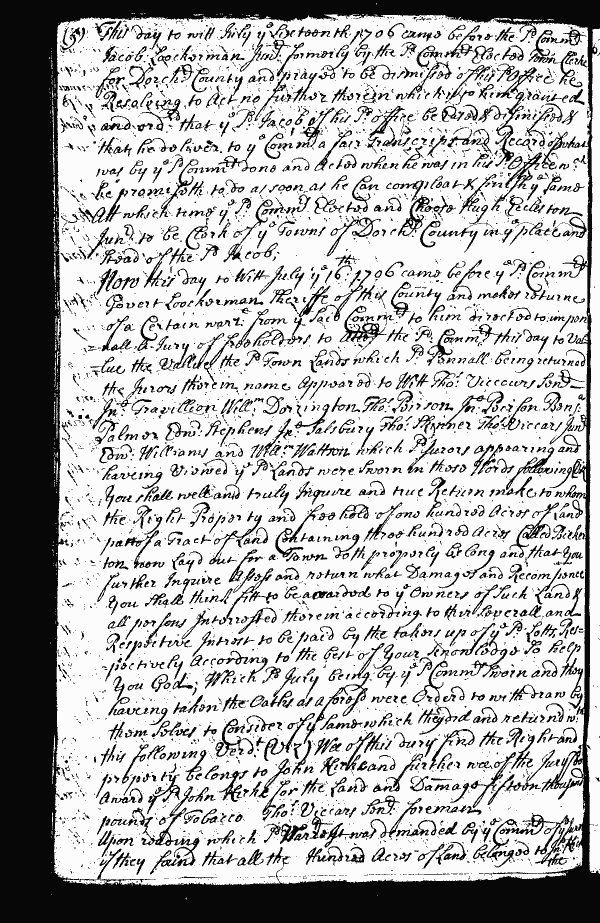 (5) This day to witt July ye Sixteenth 1706 came before the Sd. Commrs
Jacob Loockerman Junr. formerly by the Sd. Commrs Elected Town Clerk
for Dorchr County and prayed to be dismissed of his Sd. Office he
Resolving to Act no further therein which is to him granted
and ordrd that ye Sd. Jacob of his Sd. office be dismissed &
that he deliver to ye Commrs a fair Transcript and Record of what
was by ye Sd Commrs done and Acted when he was in his Sd. Office wch
he promiseth to do as soon as he Can compleat & finish ye same
Att which time ye Sd. Commrs Elected and Choose Hugh Eccleston
Junr. to be Clerk of ye Towns of Dorchr. County in ye place and
stead of the Sd. Jacob;
Now this day to Witt July ye 16th. 1706 came before ye Sd. Commrs
Govert Loockerman Sheriffe of this County and makes returne
of a Certain warrt. from ye Said Commrs to him directed to impan
=nall a Jury of freeholders to the Sd. Commrs this day to Val
=lue the Vallue the Sd Town Lands which Sd. Pannall being returned
the Jurors therein name Appeared to Witt Tho: Viccurs Senr. =
Jno. Travillion Willm Dorrington Tho: Peirson Jno Peirson Benja:
Palmer Edwd. Stephens Jno Salsbury Tho: Skinner Tho: Viccars Junr
Edwd. Williams and Willm Wattson which Sd. Jurors appearing and
haveing Viewed ye Sd. Lands were Sworn in these Words following Viz
You shall well and truly Inquire and true Return make to whom
the Right Property and freehold of one hundred Acres of Land
part of a Tract of Land Containing three hundred Acres Called
ton now Layd out for a Town doth properly belong and that You
further Inquire Assess and return what Damages and Recompence
You Shall think fitt to be awarded to ye Owners of Such Land &
all persons Interested therein according to their Severall and
Respective Intrest to be paid by the takers up of ye Sd. Lotts, Res=
=pectively According to the best of Your Knowledge So help
You God, Which Sd. Jury being by ye Sd Commrs Sworn and they
having taken the Oaths as aforesd were Orderd to withdraw by
them Selves to Consider of ye same which they did and returnd wth
this following Verdt. (Viz) Wee of this Jury find the Right and
property belongs to John Kirke and further wee of the Jury Do
Award ye Sd. John Kirke for the Land and Damage fifteen thousand
pounds of Tobacco Tho: Viccars Senr. foreman
Upon reading which Sd. it was demanded by ye Commrs of ye Jury
if they found that all the Hundred Acres of Land belonged to Jno Kirke
the